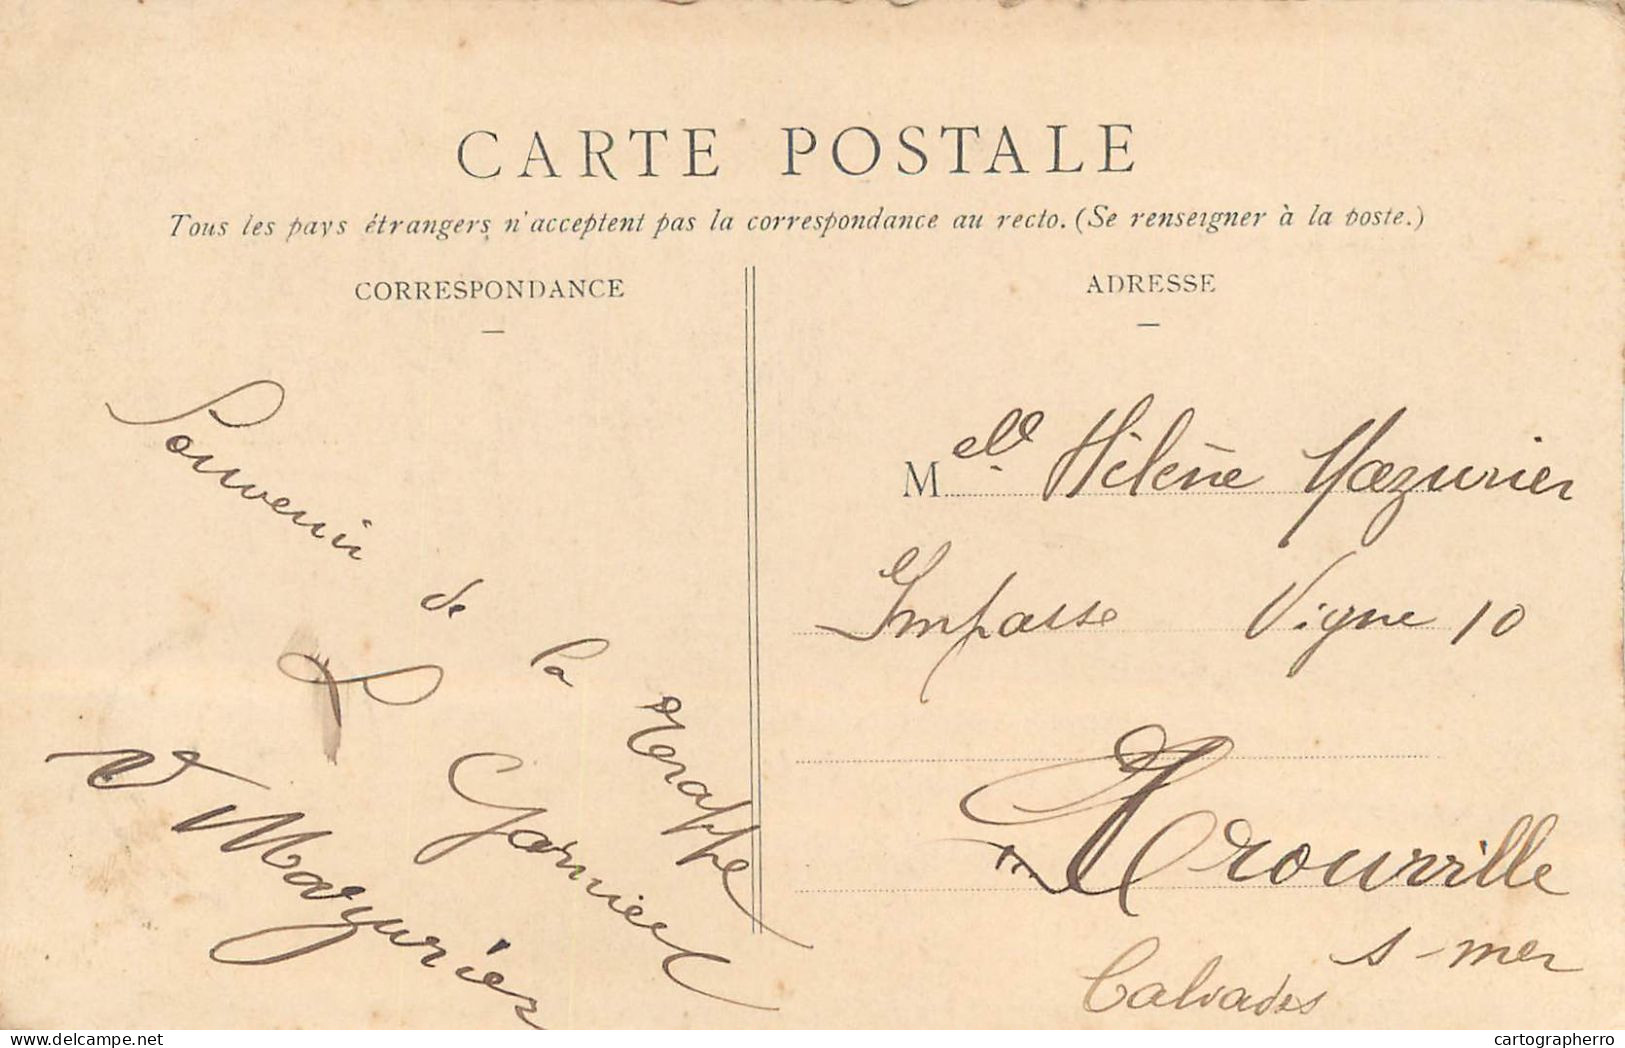 CARTE POSTALE
Tous les pays étrangers n'acceptent pas la correspondance au recto. (Se renseigner à la poste.)
CORRESPONDANCE
ADRESSE
Souvenir de la
L Garnier
V Mazurier
Melle. Hélène Mazurier
Impasse Vigne 10
Trouville
s-mer
Calvados
delcampe.net
cartographerro